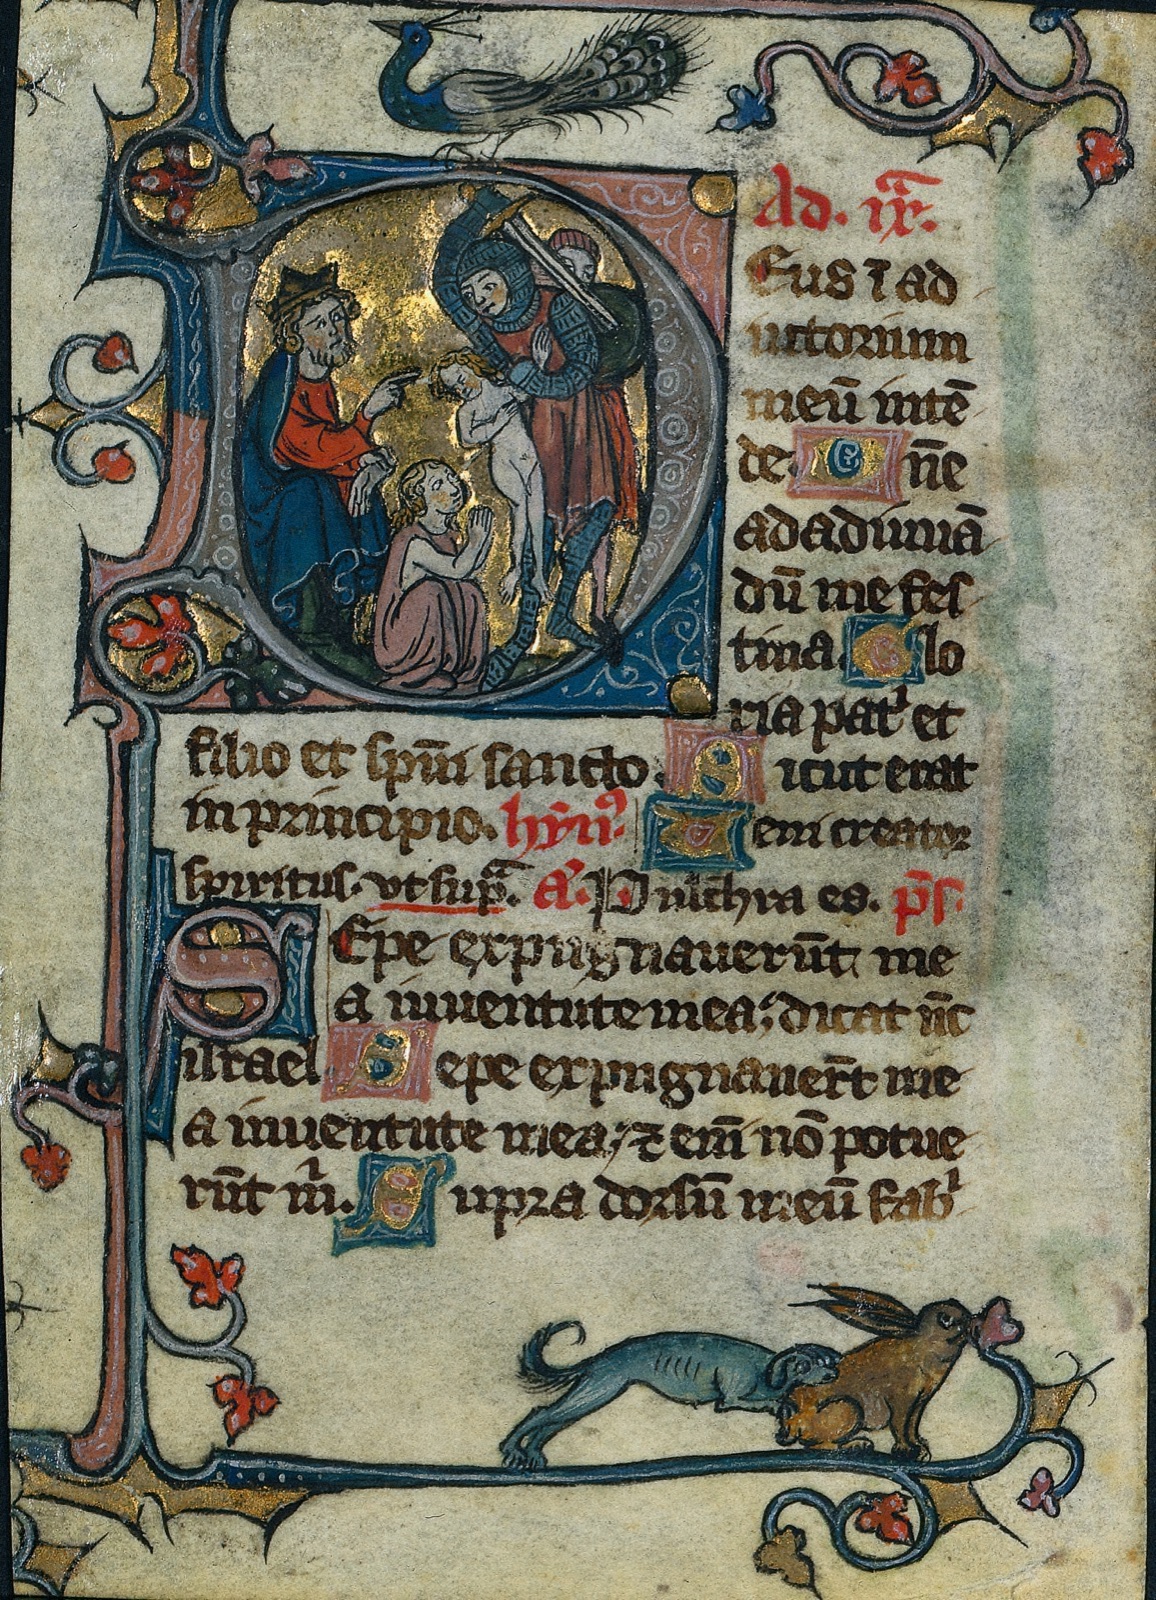 Ad. ix᷑.
Eus ī ad
iutorium
meū intē
de. Dn̄e
ad adiuuā
dū me fes
tina. Glo
ria pat᷑ et
filio et sp̄ui sancto. Sicut erat
in principio. hȳn⁹. Ueni creator
spiritus. ut sup͛a. a᷑. Pulchra es. p̄s.
SEpe expugnauerūt me
a iuuentute mea: dicat n̄c
israel Sepe expugnauer̄t me
a iuuentute mea: ⁊ em̄ nō potue
rūt m᷑. Supra dorsū meū fab᷑